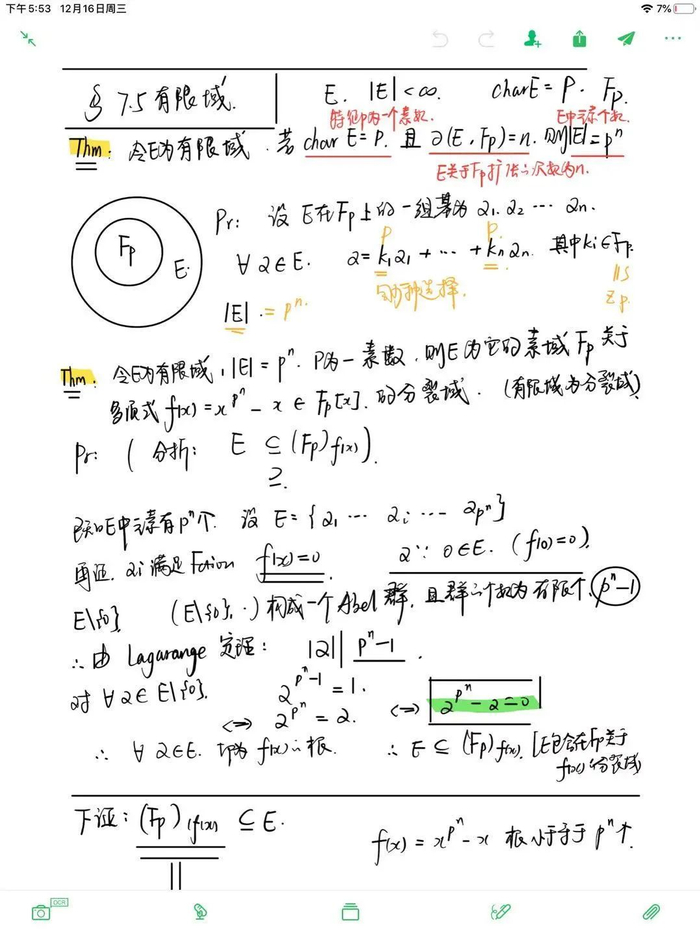 下午5:53 12月16日周三
7%
§ 7.5 有限域.
E. |E|<∞. charE = P. Fp.
特征P为一个素数. E中元素个数.
Thm: 令E为有限域. 若 char E = P. 且 ∂(E, Fp)=n. 则|E|=p^n
E关于Fp扩张之次数为n.
Pr: 设 E在Fp上的一组基为 α1. α2 ⋯ αn.
P P.
∀ α∈E. α = k1α1 + ⋯ + knαn. 其中ki∈Fp.
Fp E.
|E| = p^n.
Zp.
Thm: 令E为有限域, |E|=p^n. P为一素数. 则E为它的素域Fp关于
多项式 f(x) = x^{p^n} - x ∈ Fp[x]. 的分裂域. (有限域为分裂域)
Pr: ( 分析: E ⊆ (Fp)f(x)).
⊇.
已知E中元素有p^n个. 设 E = {α1 ⋯ αi ⋯ αp^n}
再证. αi 满足 f(x)=0. α∵ 0∈E. (f(0)=0).
E\{0} (E\{0}, ·) 构成一个Abel群, 且群之个数为有限个. p^n-1
∴ 由 Lagarange 定理: |α| | p^n-1.
对 ∀ α∈E\{0}. α^{p^n-1} = 1.
⇔ α^{p^n} = α. ⇔ α^{p^n} - α = 0
∴ ∀ α∈E. 均为 f(x)之根. ∴ E ⊆ (Fp)f(x). [E包含在Fp关于
f(x)的分裂域
下证: (Fp)(f(x)) ⊆ E. f(x) = x^{p^n} - x 根小于等于 p^n个.
OCR